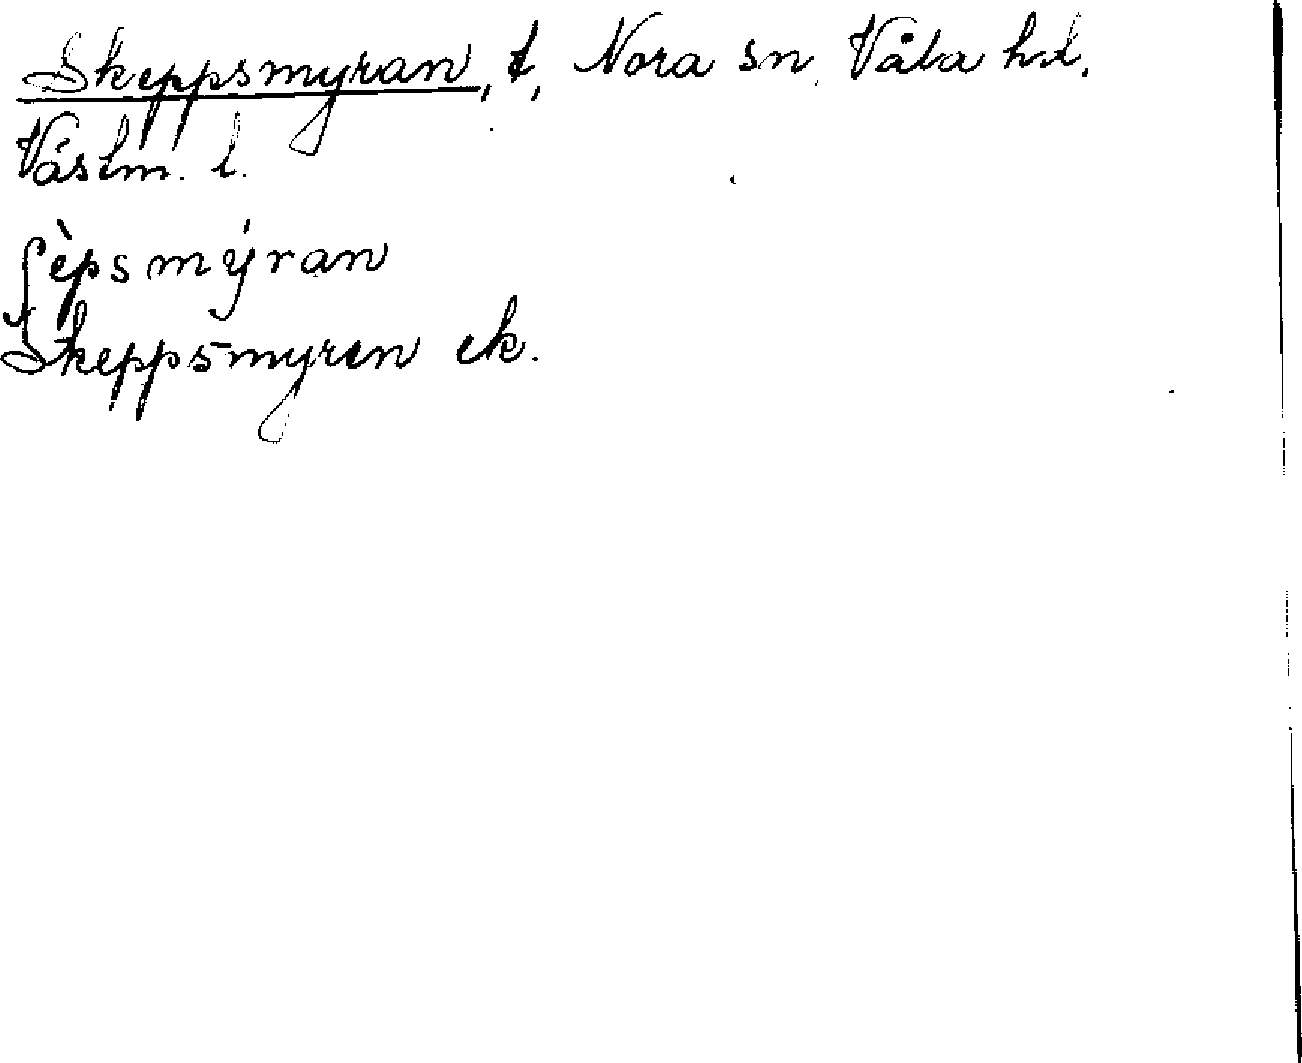 Skeppsmyran, t, Nora sn, Våla hd,
Västm. l.
ʃèpsmýran
Skeppsmyren ek.